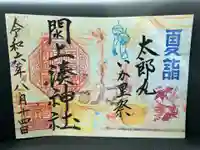 夏詣
太郎丸
いか里祭
閖上湊神社
令和六年八月十四日